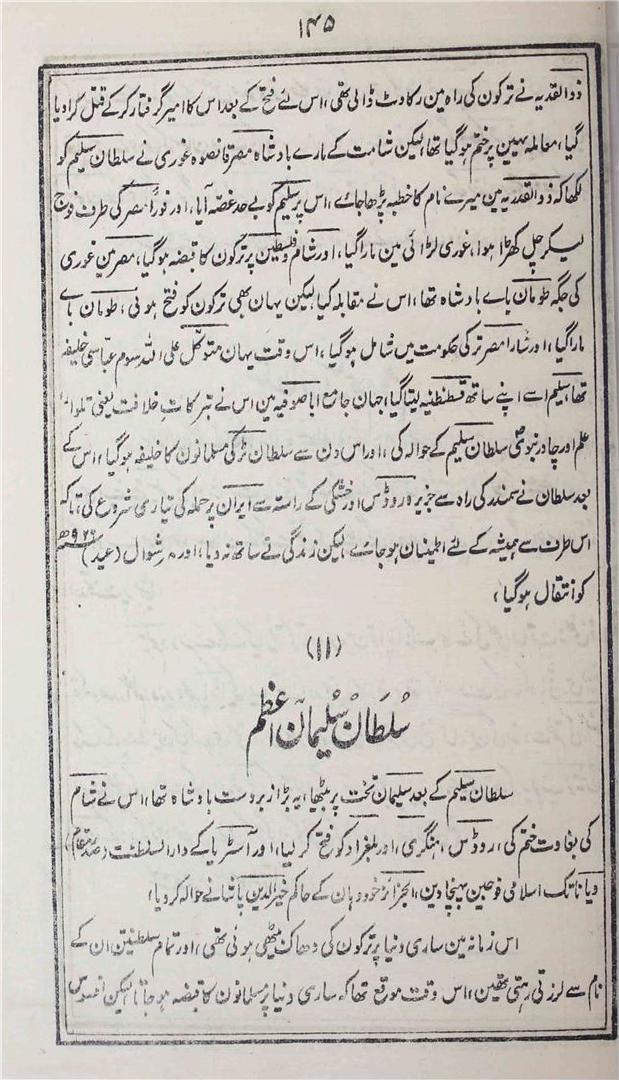 ۱۴۵
ذوالقدیہ نے ترکون کی راہ مین رکاوٹ ڈالی تھی، اس لئے فتح کے بعد اس کا امیر گرفتار کرکے قتل کرا دیا
گیا، معاملہ یہین پر ختم ہو گیا تھا، لیکن شامت کے مارے بادشاہ مصر قانصوہ غوری نے سلطان سلیم کو
لکھا کہ ذوالقدریہ مین میرے نام کا خطبہ پڑھا جائے، اس پر سلیم کو بے حد غصہ آیا، اور فوراً مصر کی طرف فوج
لیکر چل کھڑا ہوا، غوری لڑائی مین مارا گیا، اور شام و فلسطین پر ترکون کا قبضہ ہو گیا، مصر مین غوری
کی جگہ طومان بے بادشاہ تھا، اس نے مقابلہ کیا لیکن یہان بھی ترکون کو فتح ہوئی، طومان بے
مارا گیا، اور سارا مصر ترکی حکومت مین شامل ہو گیا، اس وقت یہان متوکل علی اللہ سوم عباسی خلیفہ
تھا، سلیم اسے اپنے ساتھ قسطنطنیہ لیتا گیا، جہان جامع ایاصوفیہ مین اس نے تبرکاتِ خلافت یعنی تلوار،
علم اور چادر نبوی سلطان سلیم کے حوالہ کی، اور اس دن سے سلطان ٹرکی مسلمانون کا خلیفہ ہو گیا، اس کے
بعد سلطان نے سمندر کی راہ سے جزیرہ روڈس اور خشکی کے راستہ سے ایران پر حملہ کی تیاری شروع کی، تاکہ
اس طرف سے ہمیشہ کے لئے اطمینان ہو جائے، لیکن زندگی نے ساتھ نہ دیا، اور شوال (عید)
کو انتقال ہو گیا،
(۱۱)
سُلطان سُلیمان اعظم
سلطان سلیم کے بعد سلیمان تخت پر بیٹھا، یہ بڑا زبردست بادشاہ تھا، اس نے شام
کی بغاوت ختم کی، روڈس، ہنگری، اور بلغراد کو فتح کر لیا، اور آسٹریا کے دارالسلطنت (صدر مقام)
ویانا تک اسلامی فوجین پہنچا دین، الجزائر خود وہان کے حاکم خیرالدین پاشا نے حوالہ کر دیا،
اس زمانہ مین ساری دنیا پر ترکون کی دھاک بیٹھی ہوئی تھی، اور تمام سلطنتین ان کے
نام سے لرزتی رہتی تھین، اس وقت موقع تھا کہ ساری دنیا پر مسلمانون کا قبضہ ہو جاتا، لیکن افسوس